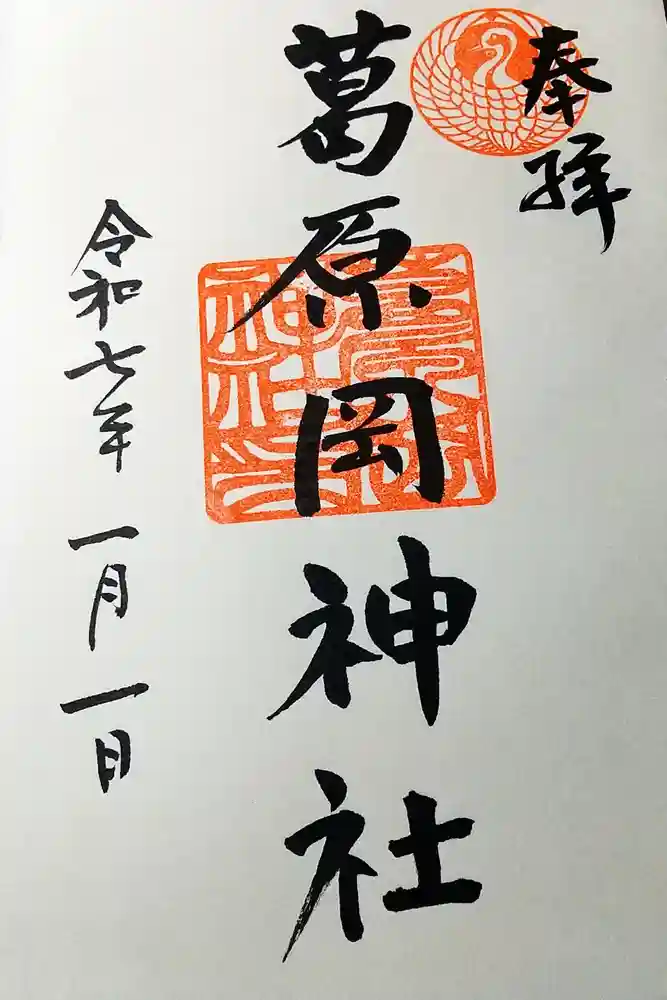 奉拝
葛原岡神社
令和七年 一月一日